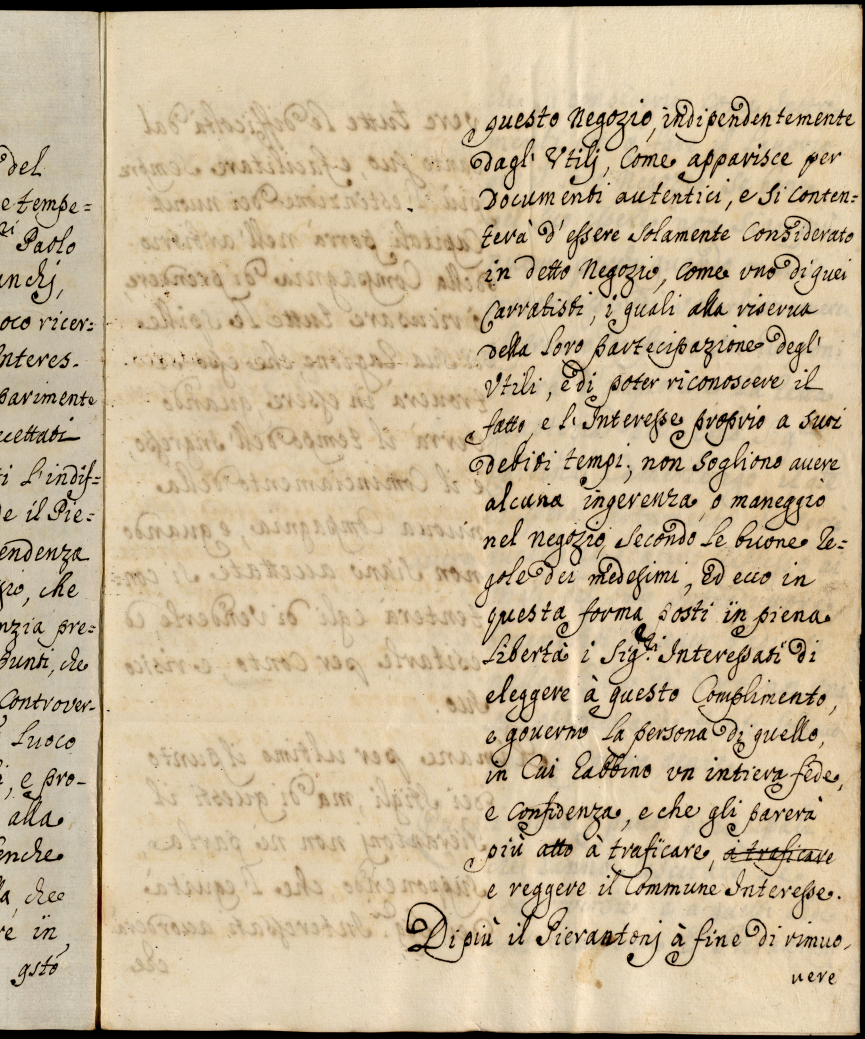 del
e tempe=
ri Paolo
anchj,
oco ricer=
nteres-
parimente
ccettati
ti l'indif=
de il Pie=
endenza
che
nzia pre=
punti, che
Controver-
Luoco
, e pro-
alla
enche
la, che
re in
gsto
questo Negozio, indipendentemente
dagl' Vtilj, Come apparisce per
Documenti autentici, e Si Conten=
terà d'essere Solamente Considerato
in detto Negozio, Come vno di quei
Carratisti, i quali alla riserva
della Loro partecipazione degl'
Vtili, e di poter riconoscere il
fatto, e l' Interesse proprio a suoi
debiti tempi, non Sogliono avere
alcuna ingerenza, o maneggio
nel negozio, Secondo le buone re=
gole dei medesimi, Ed ecco in
questa forma posti in piena
Libertà i Sigri. Interessati di
eleggere à questo Complimento,
e governo la persona di quello,
in Cui habbino vn intiera fede,
e confidenza, e che gli parerà
più atto à traficare, à traficare
e reggere il Commune Interesse.
Di più il Pierantonj à fine di rimuo-
vere